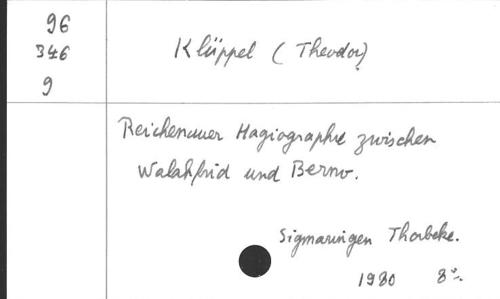 96
346
9
Klüppel (Theodor)
Reichenauer Hagiographie zwischen
Walahfrid und Berno.
Sigmaringen Thorbeke.
1980 8°.